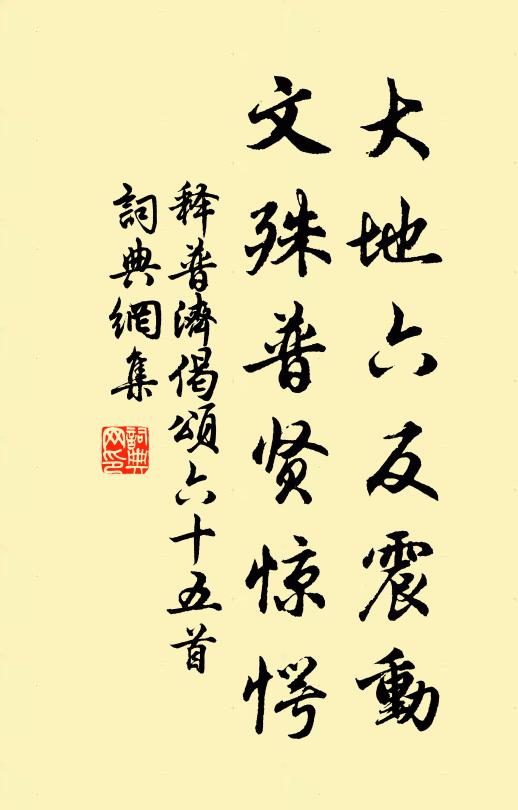 大地六反震動
文殊普贤惊愕
释普濟偈頌六十五首
詞典網集
詞典網印